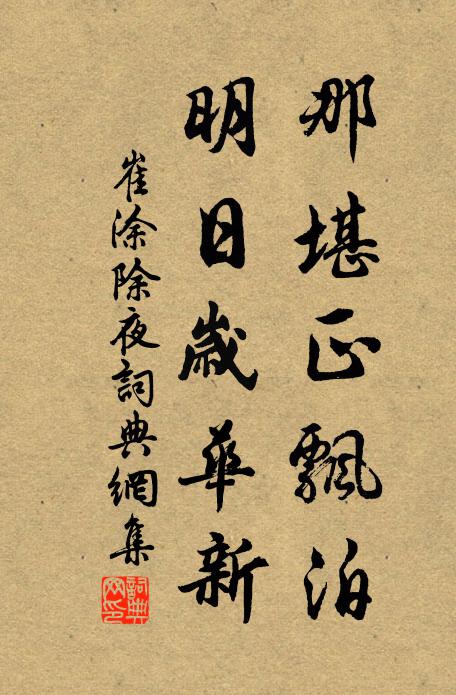 那堪正飄泊
明日歲華新
崔涂除夜詞典網集
詞典網印